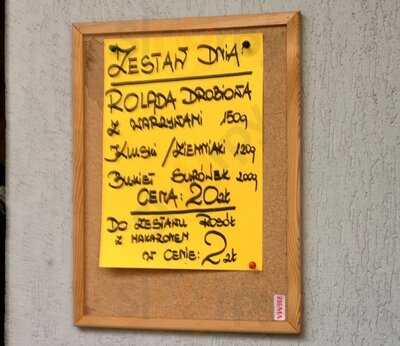 ZESTAW DNIA:
ROLADA DROBIOWA
Z WARZYWAMI 150g
KLUSKI / ZIEMNIAKI 120g
BUKIET SURÓWEK 200g
CENA: 20zł
DO ZESTAWU ROSÓŁ
Z MAKARONEM
W CENIE: 2zł